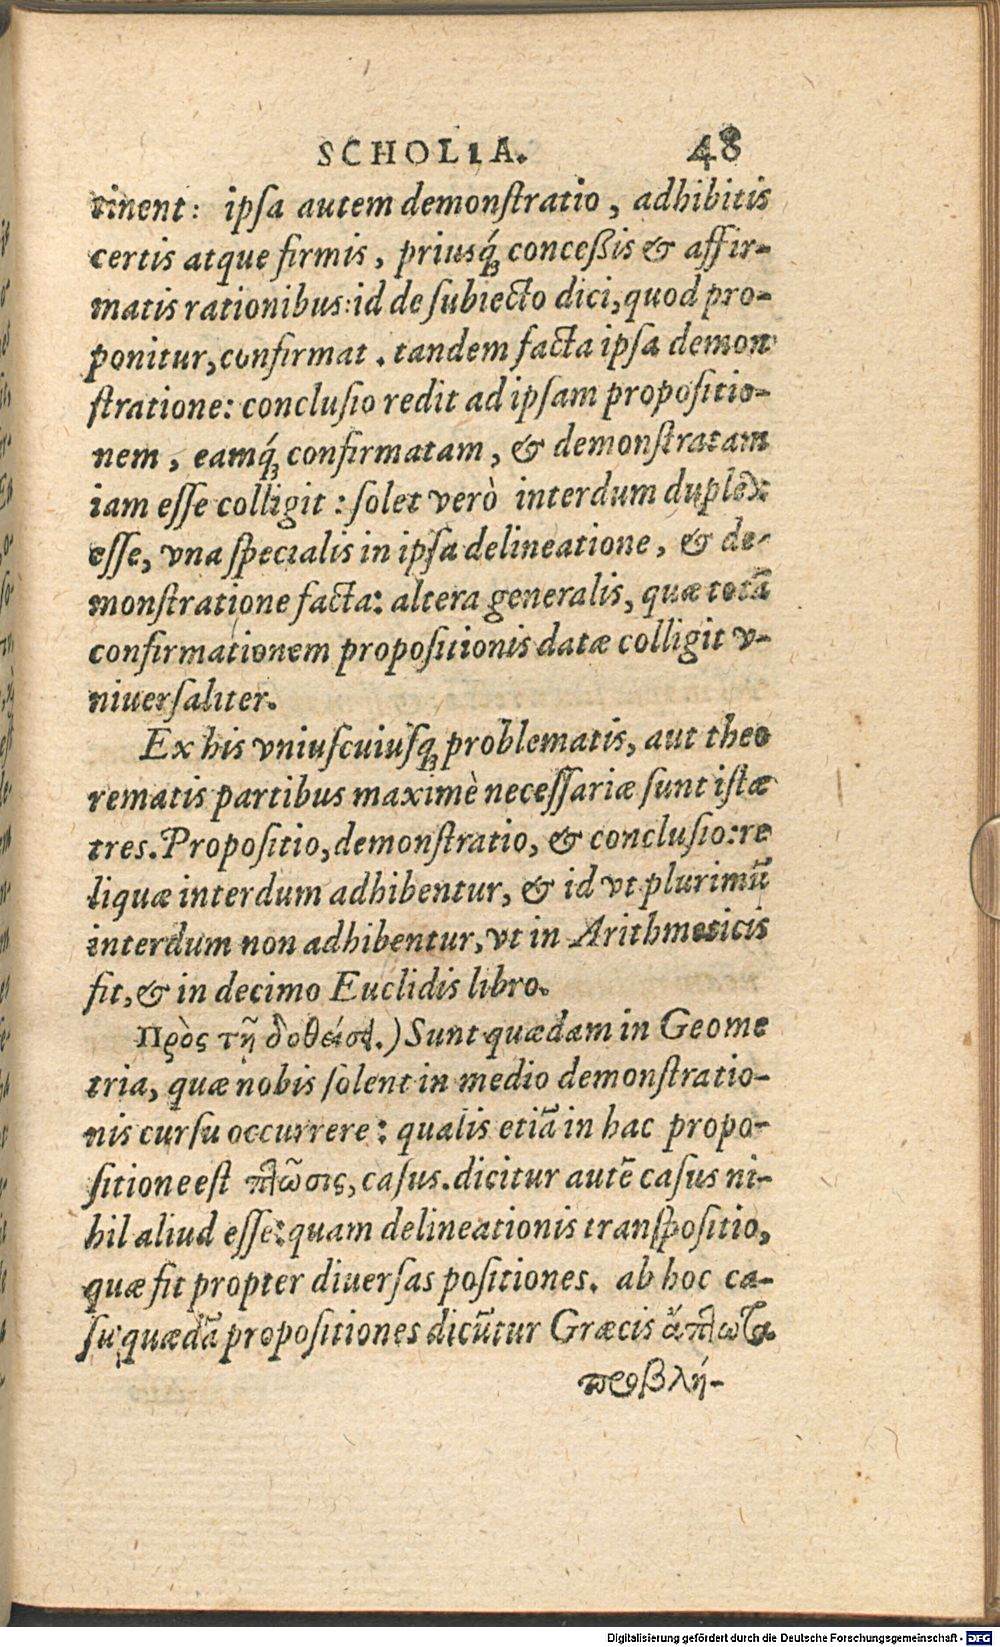 SCHOLIA. 48
tinent: ipsa autem demonstratio, adhibitis
certis atque firmis, priusq́ꝫ conceßis & affir-
matis rationibus: id de subiecto dici, quod pro-
ponitur, confirmat. tandem facta ipsa demon
stratione: conclusio redit ad ipsam propositio-
nem, eamq́ꝫ confirmatam, & demonstratam
iam esse colligit: solet verò interdum duplex
esse, vna specialis in ipsa delineatione, & de-
monstratione facta: altera generalis, quæ totã
confirmationem propositionis datæ colligit v-
niuersaliter.
Ex his vniuscuiusqꝫ problematis, aut theo
rematis partibus maximè necessariæ sunt istæ
tres. Propositio, demonstratio, & conclusio: re
liquæ interdum adhibentur, & id vt plurimũ
interdum non adhibentur, vt in Arithmeticis
fit, & in decimo Euclidis libro.
Πρὸς τῇ δοθείσῃ.) Sunt quædam in Geome
tria, quæ nobis solent in medio demonstratio-
nis cursu occurrere: qualis etiã in hac propo-
sitione est πτῶσις, casus. dicitur autẽ casus ni-
hil aliud esse: quam delineationis transpositio,
quæ fit propter diuersas positiones. ab hoc ca-
su quædã propositiones dicũtur Græcis ἄπτωτα
προβλή-
Digitalisierung gefördert durch die Deutsche Forschungsgemeinschaft - DFG